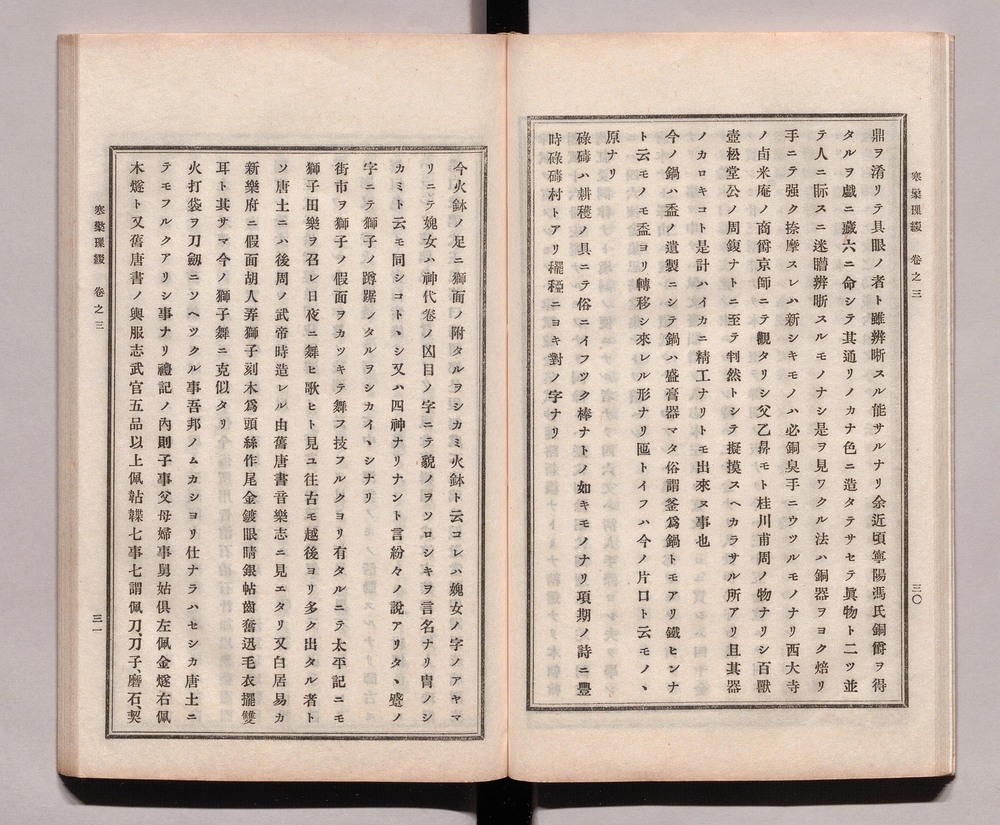 寒檠璅綴 卷之三
三〇
鼎ヲ淆リテ具眼ノ者ト雖辨晰スル能サルナリ余近頃寧陽馮氏銅爵ヲ得
タルヲ戯ニ藏六ニ命シテ其通リノカナ色ニ造タテサセテ眞物ト二ツ並
テ人ニ眎スニ迷瞻辨晰スルモノナシ是ヲ見ワクル法ハ銅器ヲヨク焙リ
手ニテ强ク捺摩スレハ新シキモノハ必銅臭手ニウツルモノナリ西大寺
ノ卣米庵ノ商爵京師ニテ觀タリシ父乙鼎モト桂川甫周ノ物ナリシ百獸
壺松堂公ノ周鍑ナトニ至テ判然トシテ擬摸スヘカラサル所アリ且其器
ノカロキコト是計ハイカニ精工ナリトモ出來ヌ事也
今ノ鍋ハ盉ノ遺製ニシテ鍋ハ盛膏器マタ俗謂釜爲鍋トモアリ鐵ヒンナ
ト云モノモ盉ヨリ轉移シ來レル形ナリ匜トイフハ今ノ片口ト云モノヽ
原ナリ
碌碡ハ耕穫ノ具ニテ俗ニイフツク棒ナトノ如キモノナリ項期ノ詩ニ豐
時碌碡村トアリ穲稏ニヨキ對ノ字ナリ
今火鉢ノ足ニ獅面ノ附タルヲシカミ火鉢ト云コレハ媿女ノ字ノアヤマ
リニテ媿女ハ神代卷ノ凶目ノ字ニテ貌ノヲソロシキヲ言名ナリ冑ノシ
カミト云モ同シコトヽシ又ハ四神ナリナント言紛々ノ說アリタヽ蹙ノ
字ニテ獅子ノ蹲踞ノタルヲシカイヽシナリ
街市ヲ獅子ノ假面ヲカツキテ舞フ技フルクヨリ有タルニテ太平記ニモ
獅子田樂ヲ召レ日夜ニ舞ヒ歌ヒト見ユ往古モ越後ヨリ多ク出タル者ト
ソ唐土ニハ後周ノ武帝時造レル由舊唐書音樂志ニ見エタリ又白居易カ
新樂府ニ假面胡人弄獅子刻木爲頭絲作尾金鍍眼睛銀帖齒奮迅毛衣擺雙
耳ト其サマ今ノ獅子舞ニ克似タリ
火打袋ヲ刀劔ニソヘツクル事吾邦ノムカシヨリ仕ナラハセシカ唐土ニ
テモフルクアリシ事ナリ禮記ノ內則子事父母婦事舅姑俱左佩金燧右佩
木燧ト又舊唐書ノ輿服志武官五品以上佩䩞韘七事七謂佩刀、刀子、磨石、契
寒檠璅綴 卷之三
三一